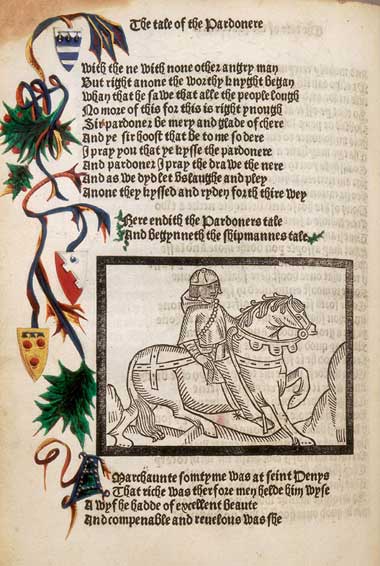 The tale of the Pardonere
With the ne with none other angry man
But right anone the worthy knyght began
Whan that he sawe that alle the people lough
No more of this for this is right ynough
Sir pardoner be mery and glade of chere
And ye sir hoost that be to me so dere
I pray you that ye kysse the pardonere
And pardoner I pray the drawe the nere
And as we dyd let us laughe and pley
Anone they kyssed and ryden forth thire wey
Here endith the Pardoners tale
And begynneth the shipmannes tale
A Marchaunte somtyme was at seint Denys
That riche was therfore men helde him wyse
A wyf he hadde of excellent beaute
And compenable and revelous was she